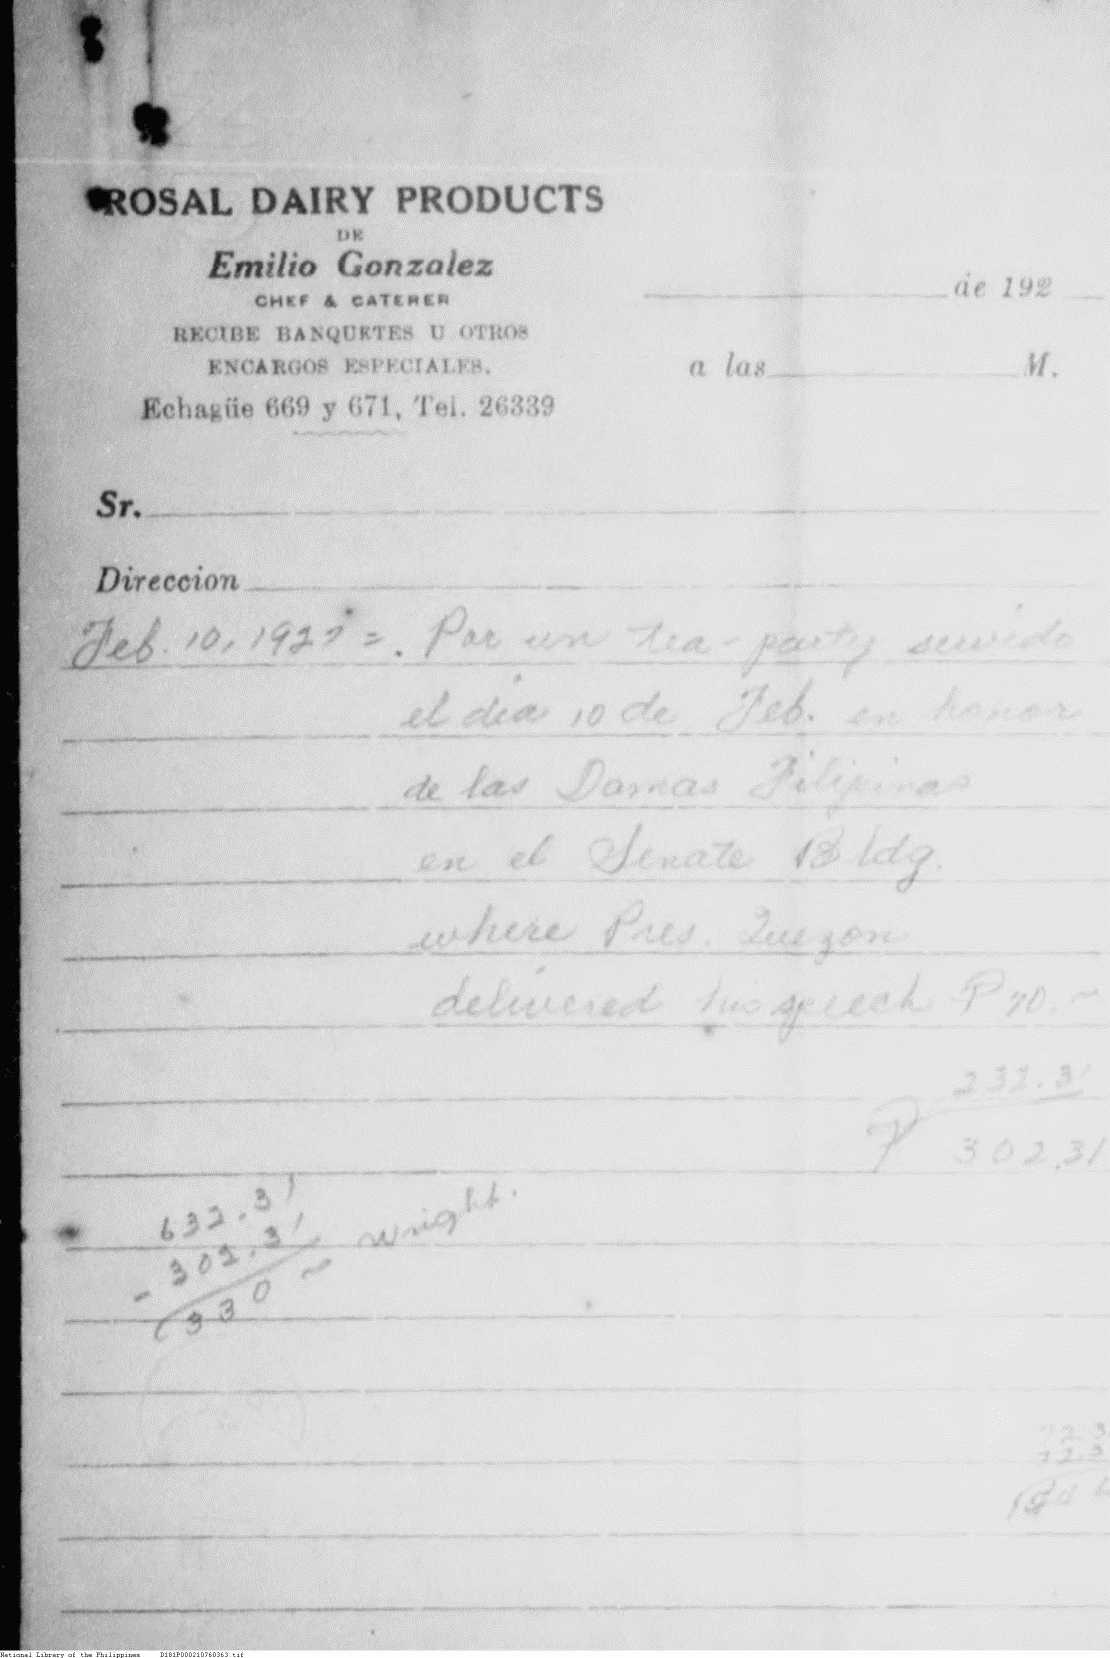 ROSAL DAIRY PRODUCTS
DE
Emilio Gonzalez
CHEF & CATERER
RECIBE BANQUETES U OTROS
ENCARGOS ESPECIALES.
Echagüe 669 y 671, Tel. 26339
de 192
a las M.
Sr.
Direccion
Feb. 10, 1927 = . Por un tea-party servido
el dia 10 de Feb. en honor
de las Damas Filipinas
en el Senate Bldg.
where Pres. Quezon
delivered his speech P 70.~
232.31
P 302.31
632.31
- 302.31 wright.
330 ~
National Library of the Philippines D181P000210760363.tif